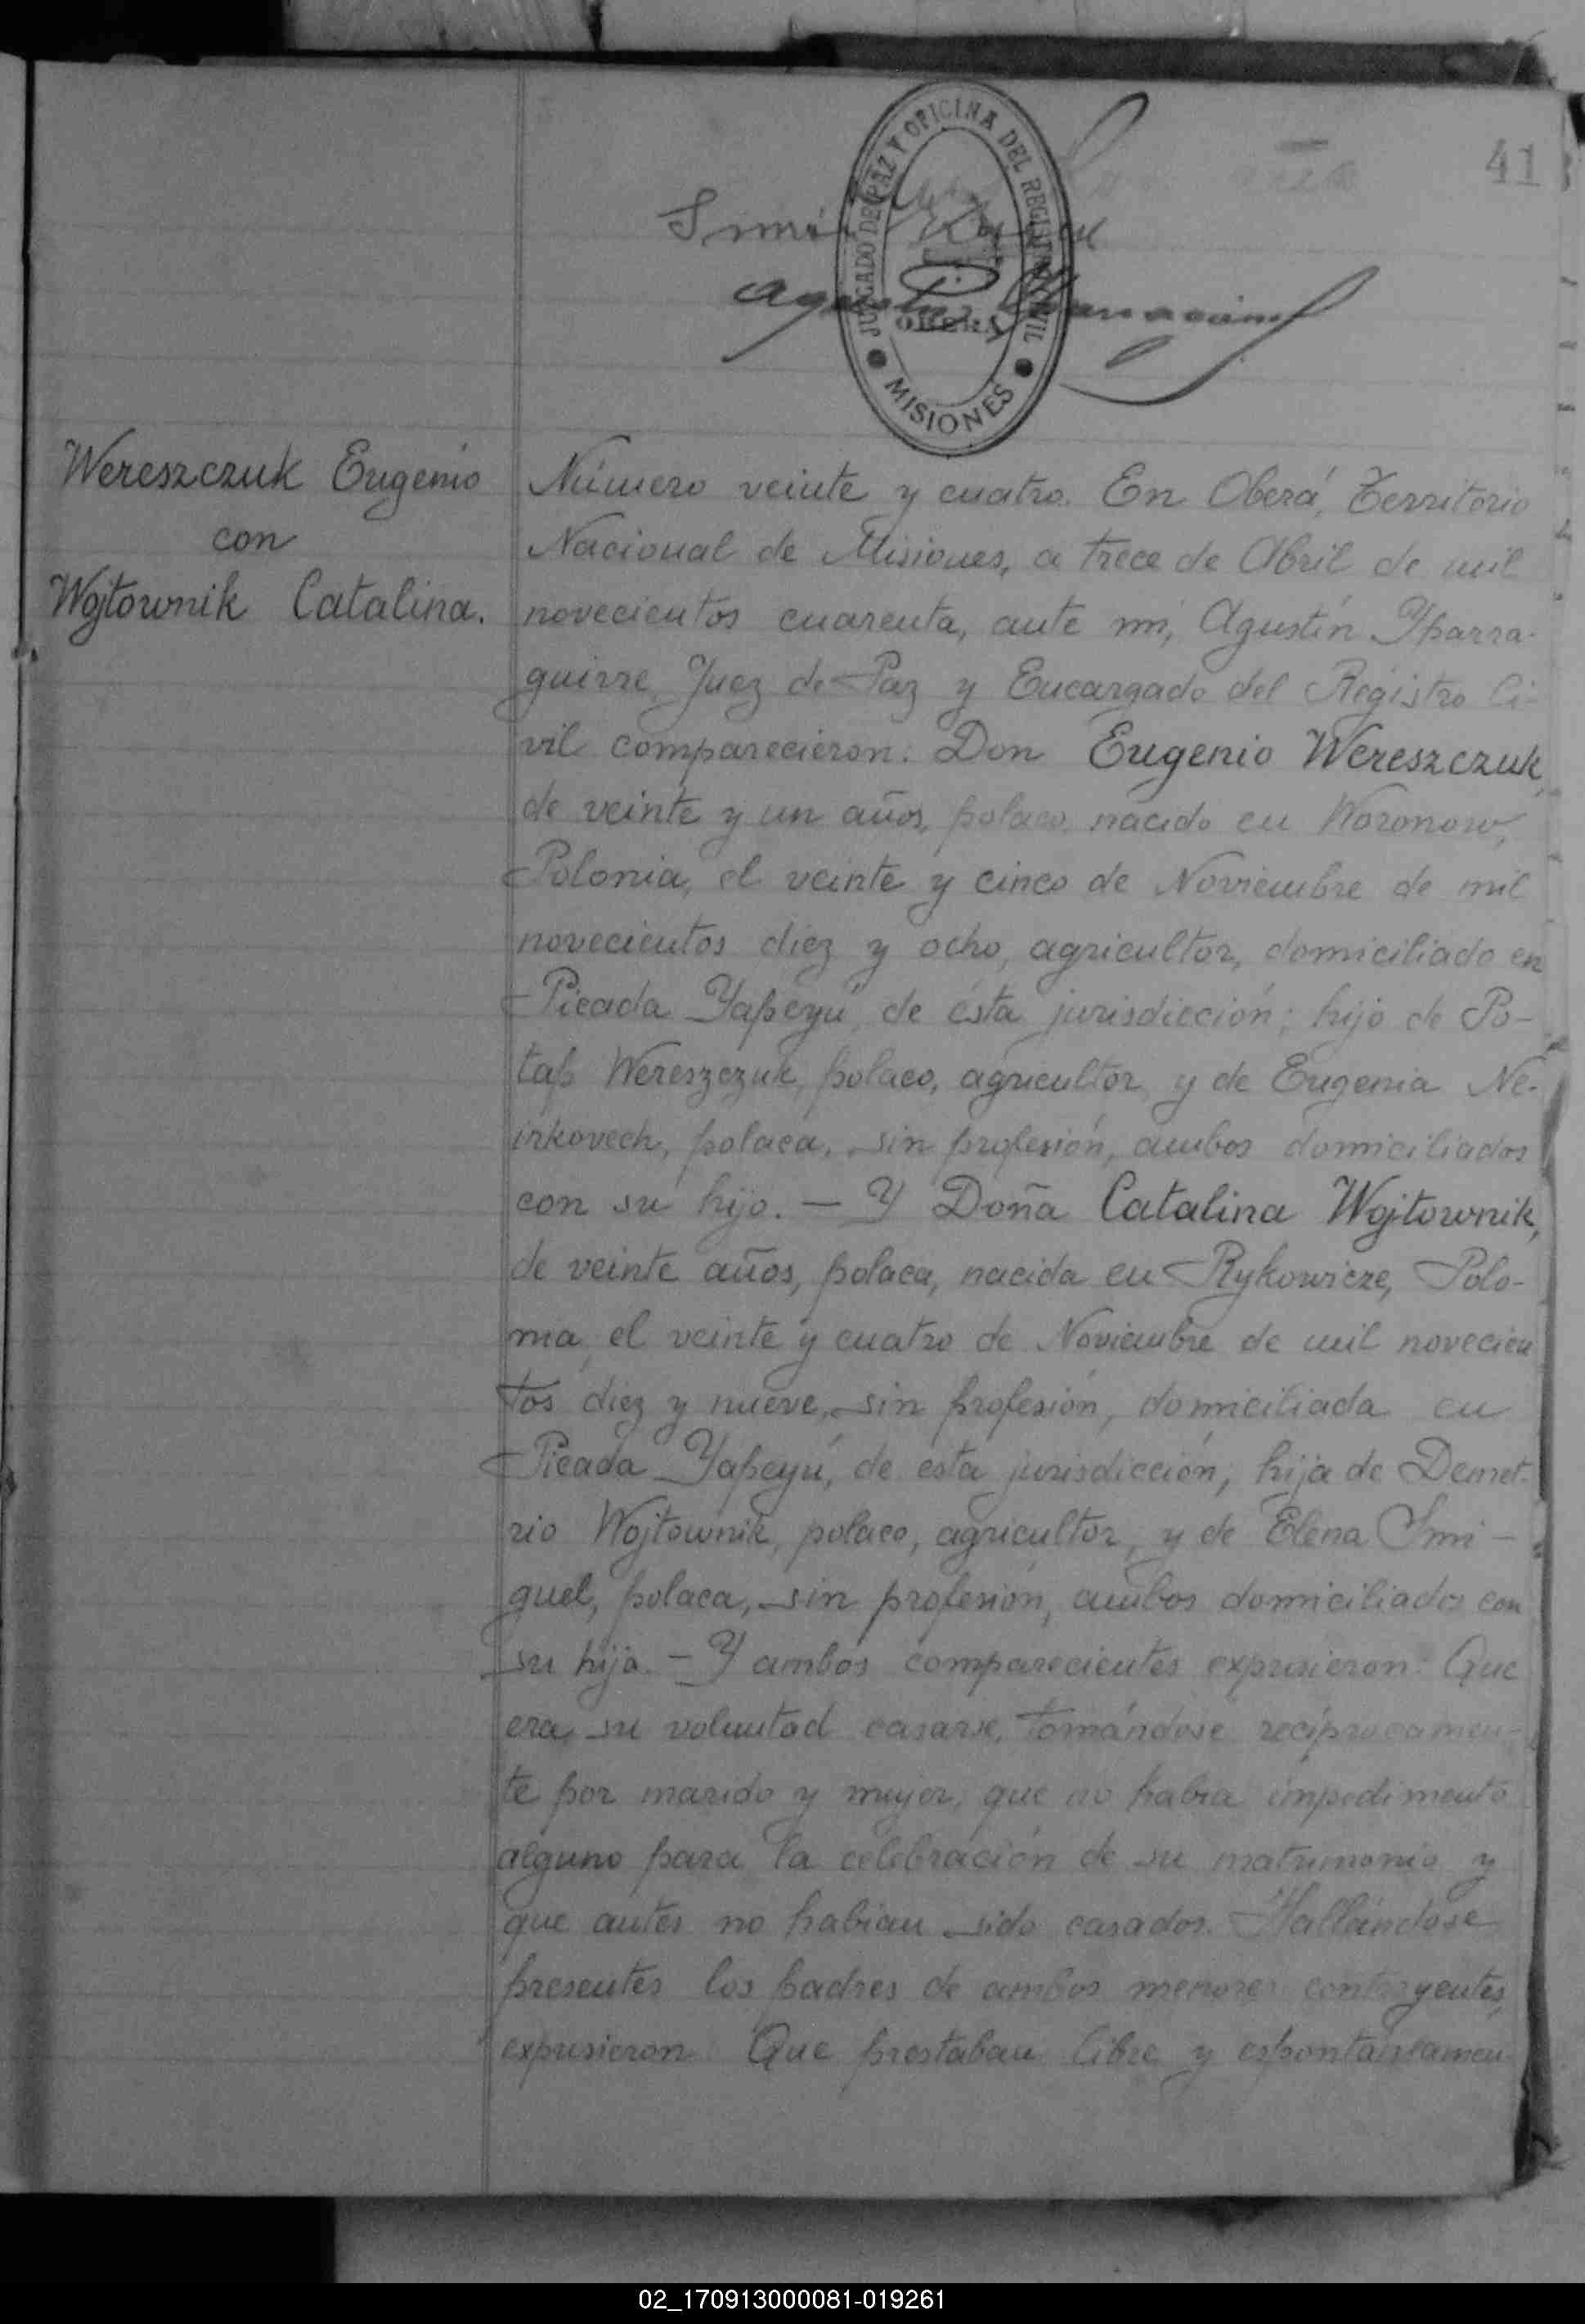 41
JUZGADO DE PAZ Y OFICINA DEL REGISTRO CIVIL
OBERÁ
MISIONES
Wereszczuk Eugenio
con
Wojtownik Catalina.
Número veinte y cuatro. En Oberá, Territorio
Nacional de Misiones, a trece de Abril de mil
novecientos cuarenta, ante mi, Agustín Yparra-
guirre, Juez de Paz y Encargado del Registro Ci-
vil comparecieron: Don Eugenio Wereszczuk,
de veinte y un años, polaco, nacido en Woronow,
Polonia, el veinte y cinco de Noviembre de mil
novecientos diez y ocho, agricultor, domiciliado en
Picada Yapeyú, de ésta jurisdicción; hijo de Po-
tap Wereszczuk, polaco, agricultor, y de Eugenia Ne-
irkovech, polaca, sin profesión, ambos domiciliados
con su hijo. — Y Doña Catalina Wojtownik,
de veinte años, polaca, nacida en Rykowicze, Polo-
nia, el veinte y cuatro de Noviembre de mil novecien
tos diez y nueve, sin profesión, domiciliada en
Picada Yapeyú, de ésta jurisdicción, hija de Demet-
rio Wojtownik, polaco, agricultor, y de Elena Smi-
guel, polaca, sin profesión, ambos domiciliados con
su hija. — Y ambos comparecientes expusieron: Que
era su voluntad casarse, tomándose recíprocamen-
te por marido y mujer, que no habia impedimento
alguno para la celebración de su matrimonio y
que antes no habian sido casados. Hallándose
presentes los padres de ambos menores contrayentes,
expusieron: Que prestaban libre y espontáneamen-
02_170913000081-019261